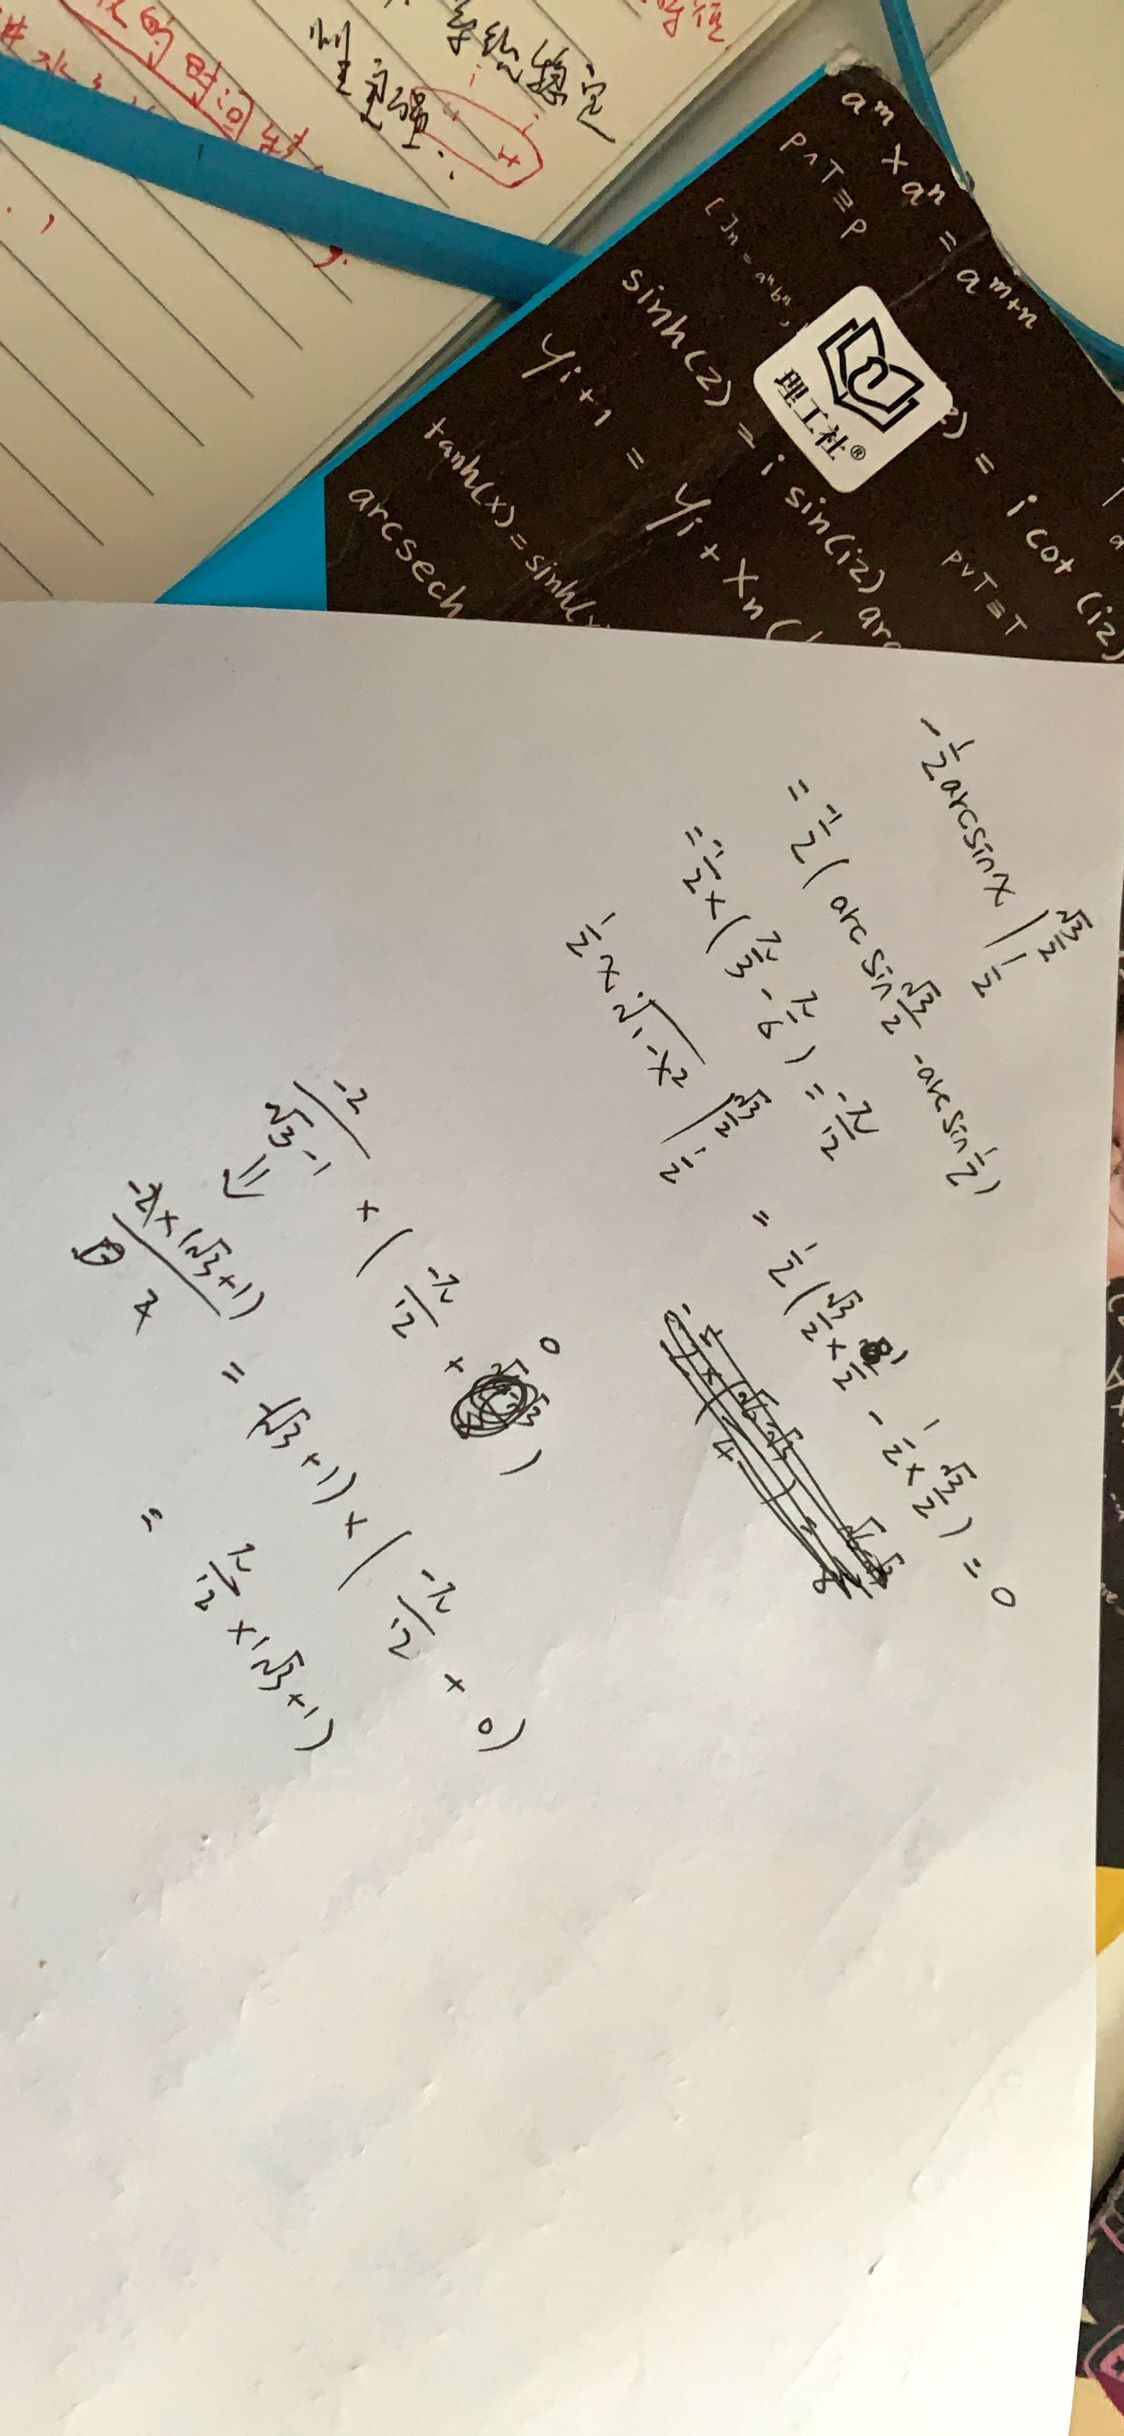 的时间
系统稳定
性变强:
a^m × a^n = a^{m+n}
P∧T≡P
= a^n b^n,
sinh(z) = i sin(iz)
= i cot(iz)
y_{i+1} = y_i + X_n(
P∨T≡T
tanh(x) = sinh(x
arcsech
理工社®
-\frac{1}{2} arcsinx |_{\frac{1}{2}}^{\frac{\sqrt{3}}{2}}
= -\frac{1}{2} ( arcsin\frac{\sqrt{3}}{2} - arcsin\frac{1}{2} )
= -\frac{1}{2} × ( \frac{π}{3} - \frac{π}{6} ) = \frac{-π}{12}
\frac{1}{2} x·\sqrt{1-x^2} |_{\frac{1}{2}}^{\frac{\sqrt{3}}{2}} = \frac{1}{2} ( \frac{\sqrt{3}}{2} × \frac{1}{2} - \frac{1}{2} × \frac{\sqrt{3}}{2} ) = 0
\frac{-2}{\sqrt{3}-1} × ( \frac{-π}{12} + 0 )
⇓
\frac{-2×(\sqrt{3}+1)}{2} = -(\sqrt{3}+1) × ( \frac{-π}{12} + 0 )
= \frac{π}{12} × (\sqrt{3}+1)